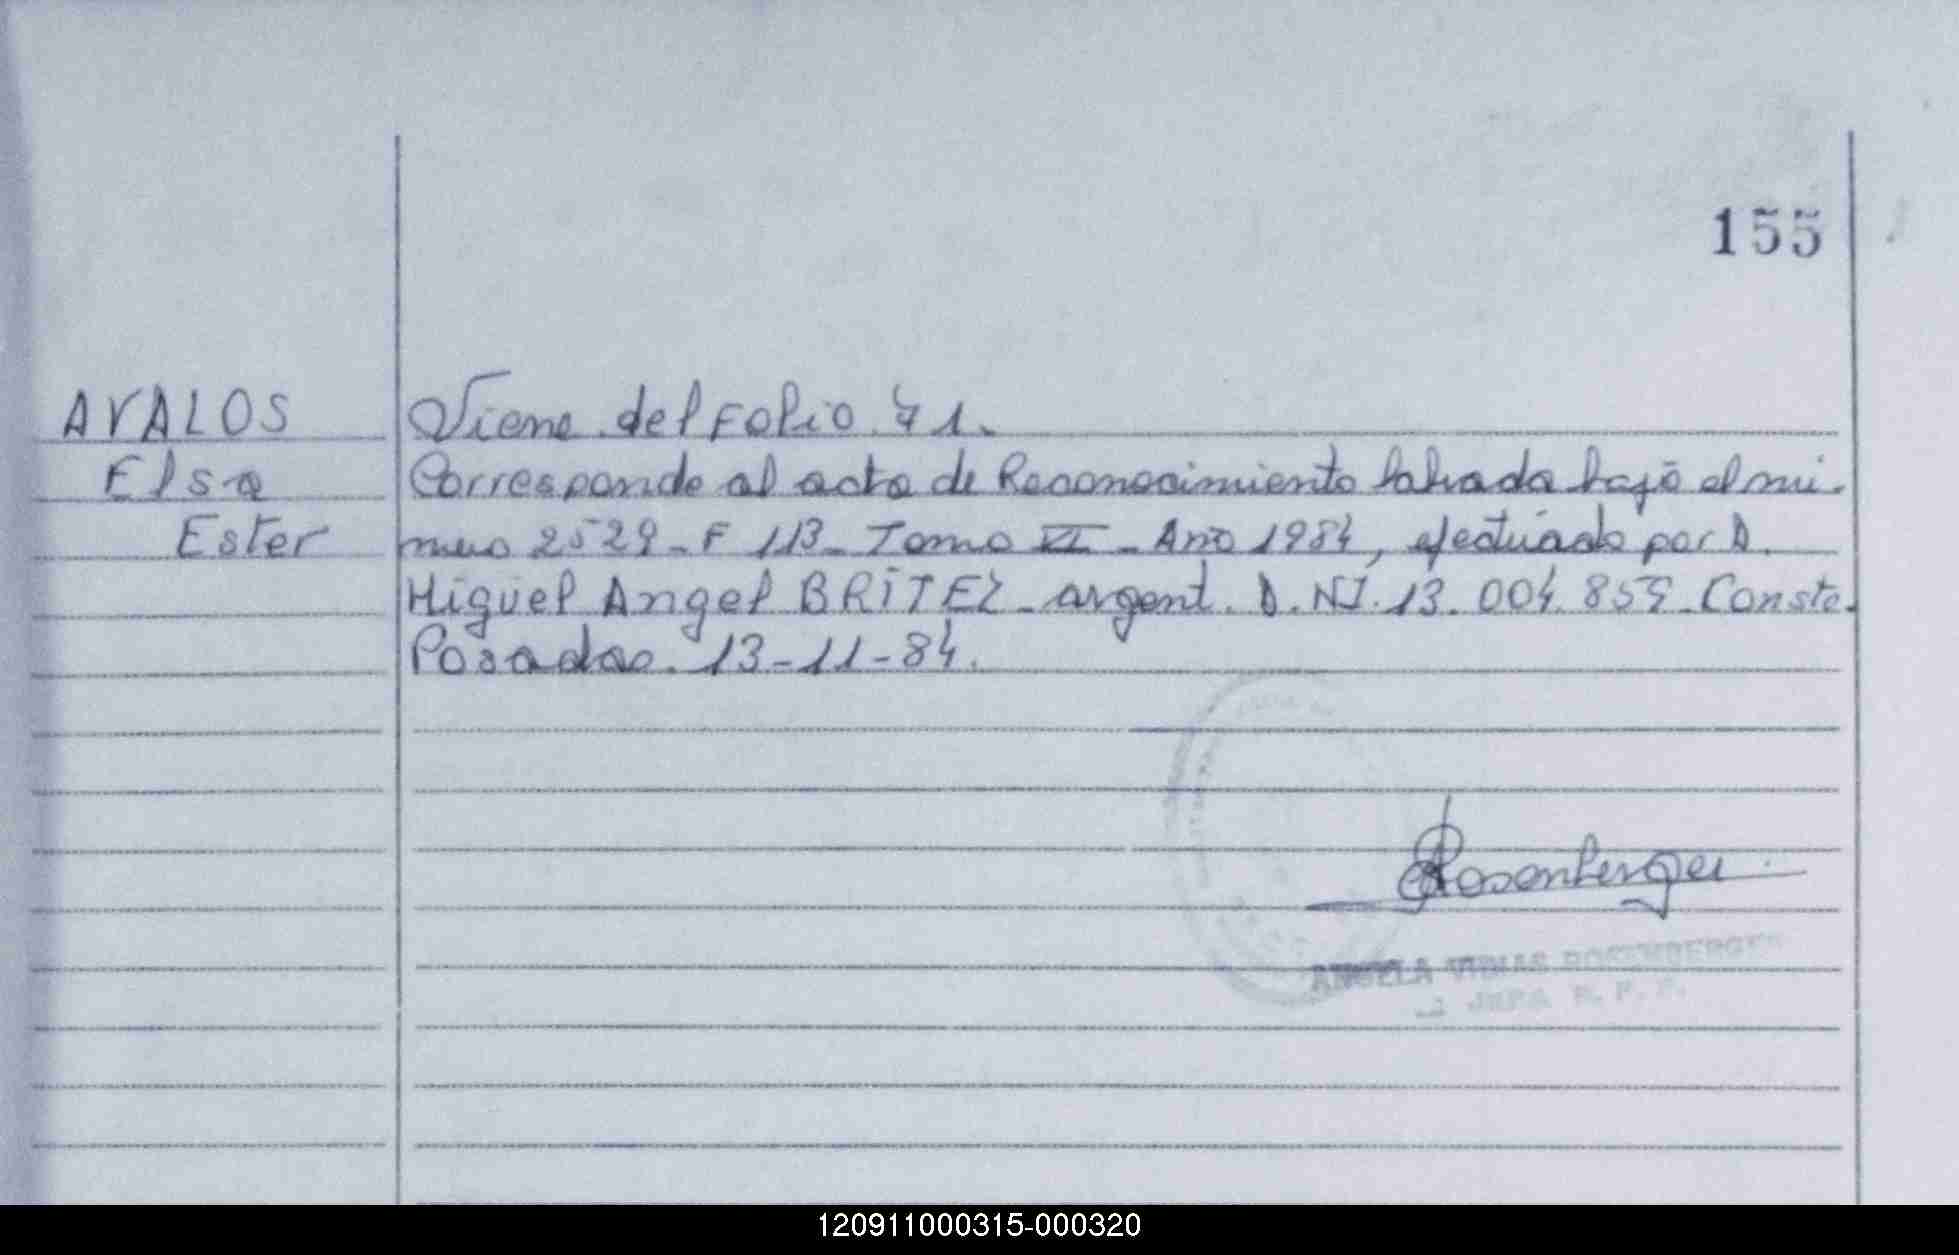 155
AVALOS
Elsa
Ester
Viene del Folio 71.
Corresponde al acta de Reconocimiento labrada bajo el nú-
mero 2529 - F 113 - Tomo VI - Año 1984, efectuado por D.
Miguel Angel BRITEZ - argent. D.NI. 13.004.859 - Conste.
Posadas. 13-11-84.
Rosenberger
ANGELA VIDIAS ROSENBERGER
JEFA R. P. P.
120911000315-000320